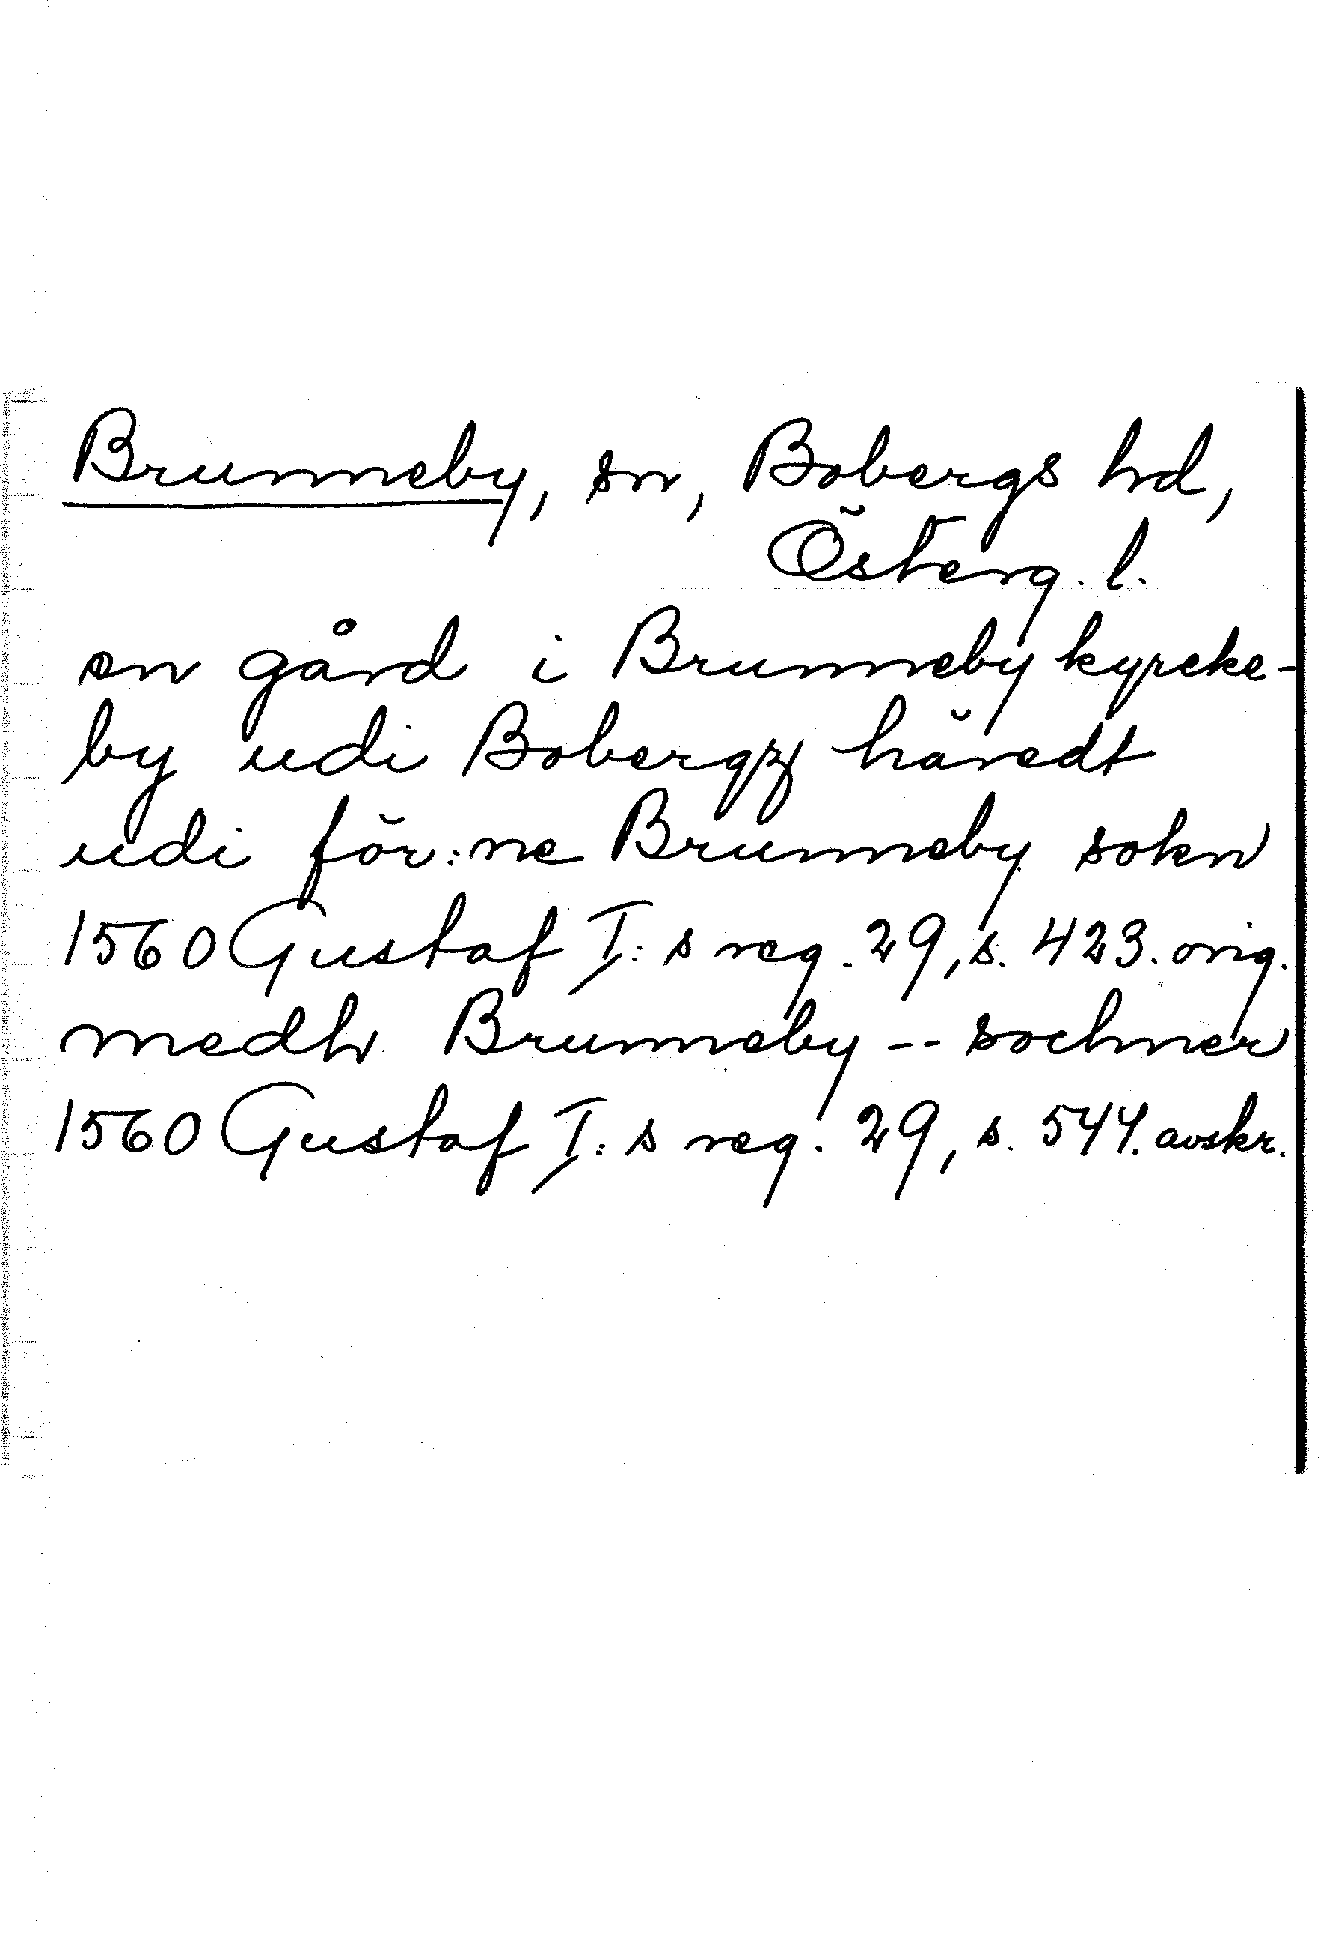 Brunneby, sn, Bobergs hd,
Österg. l.
en gård i Brunneby kyrcke-
by udi Bobergz häredt
udi för:ne Brunneby sokn
1560 Gustaf I:s reg. 29, s. 423. orig.
medh Brunneby -- sochner
1560 Gustaf I:s reg. 29, s. 544. avskr.